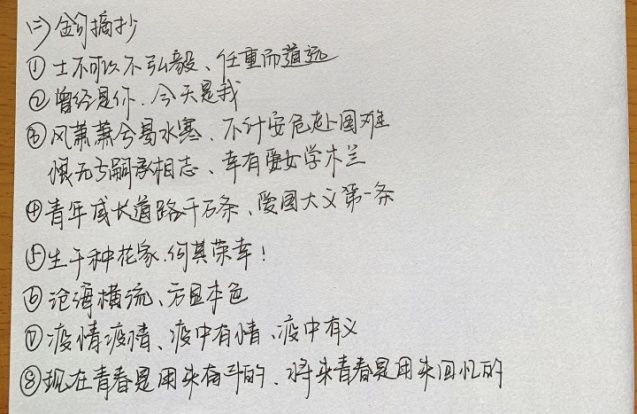 (二)金句摘抄
①士不可以不弘毅、任重而道远
②曾经是你、今天是我
③风萧萧兮易水寒、不计安危赴国难
恨无亏嗣承相志、幸有爱女学木兰
④青年成长道路千万条、爱国大义第一条
⑤生于种花家、何其荣幸!
⑥沧海横流、方显本色
⑦疫情疫情、疫中有情、疫中有义
⑧现在青春是用来奋斗的、将来青春是用来回忆的